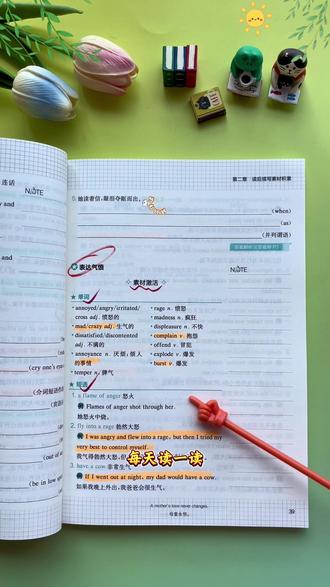 第二章 读后续写素材积累
连话
NOTE
y and
5. 她读着信,眼泪夺眶而出。
(when)
(as)
(并列谓语)
NOTE
表达气愤
素材激活
单词
annoyed/angry/irritated/
cross adj. 愤怒的
mad/crazy adj. 生气的
dissatisfied/discontented
adj. 不满的
annoyance n. 厌烦;烦人
的事情
temper n. 脾气
rage n. 愤怒
madness n. 疯狂
displeasure n. 不快
complain v. 抱怨
offend v. 冒犯
explode v. 爆发
burst v. 爆发
短语
1. a flame of anger 怒火
例 Flames of anger shot through her.
她怒火中烧。
2. fly into a rage 勃然大怒
例 I was angry and flew into a rage, but then I tried my
very best to control myself.
我气得勃然大怒,但
3. have a cow 非常生气
例 If I went out at night, my dad would have a cow.
如果我晚上外出,我爸爸会很生气。
每天读一读
(cry one's eyes
(介词短语作
(out of
(be in low s
A mother's love never changes.
母爱永恒。
39